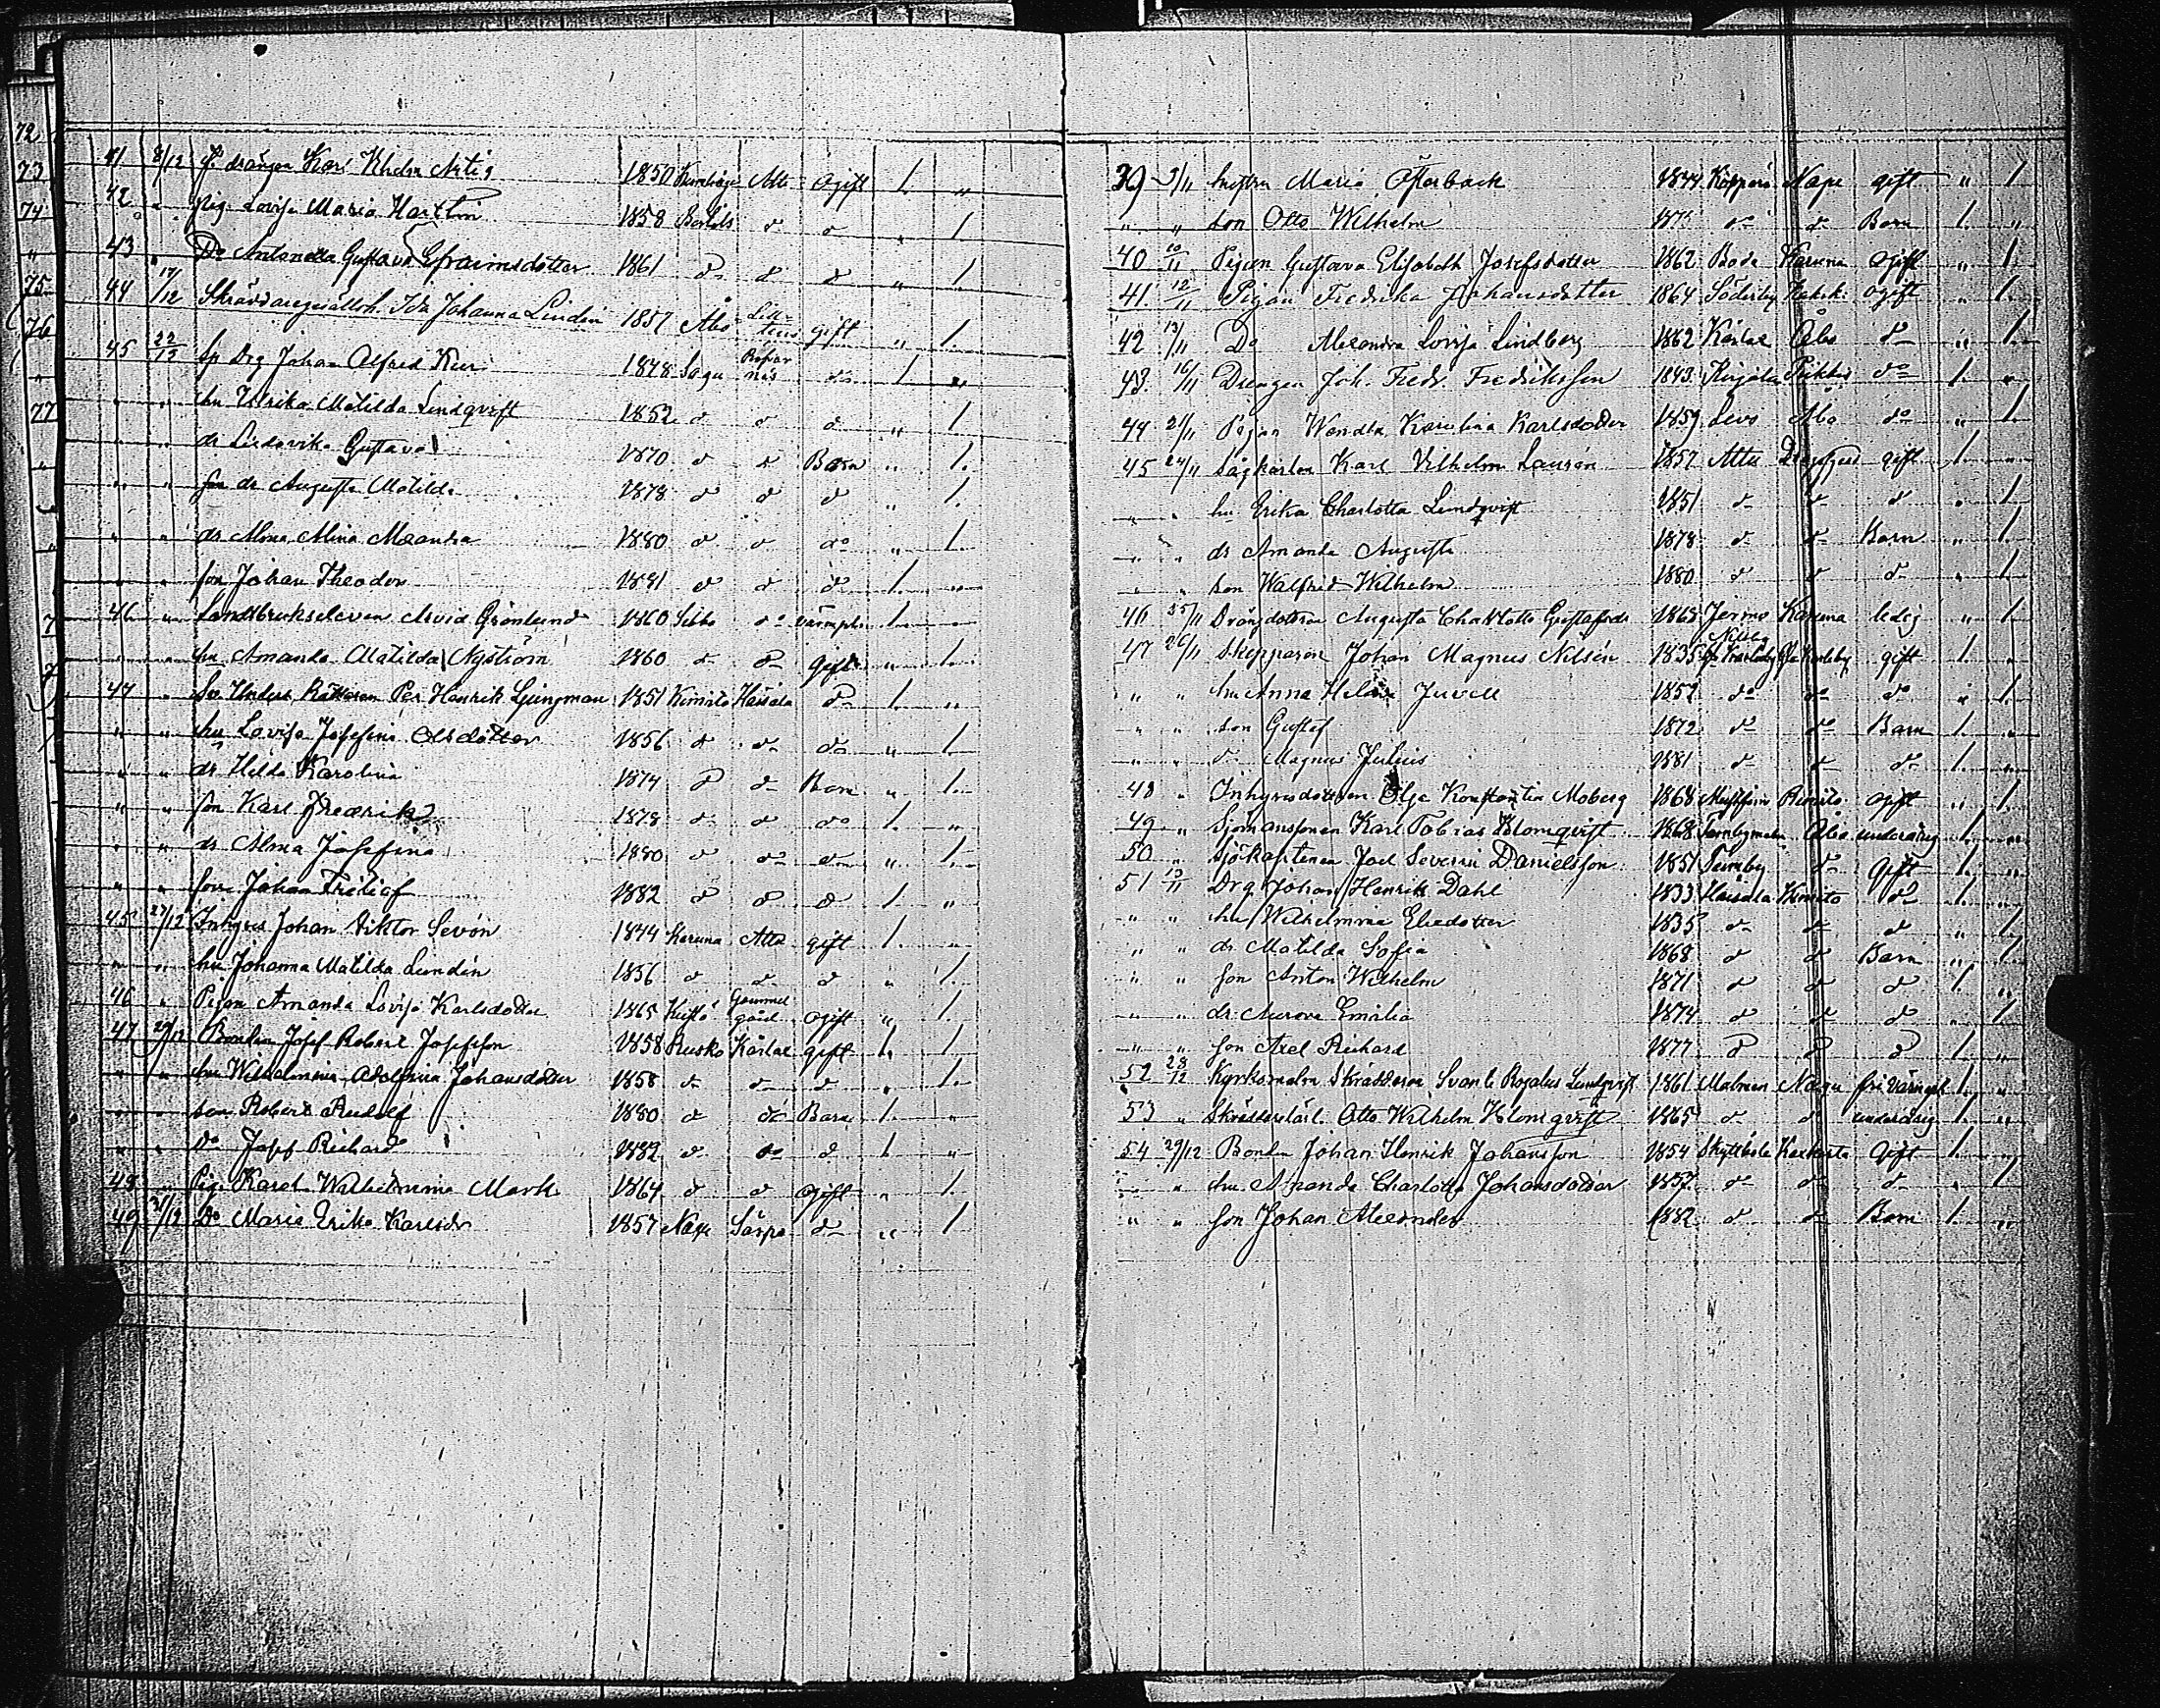 72
73
74
"
75
76
"
77
41 8/12 f. drängen Karl Vilhelm Artig 1850 Kumlinge Attu Ogift 1. "
42 " Pig. Lovisa Maria Hartlin 1858 d d " 1.
43 " Do Antonetta Gustava Efraimsdotter 1861 d d d " 1
44 17/12 Skräddaregesällsh. Ida Johanna Lindén 1857 Åbo gift " 1.
45 22/12 Sp Drg Johan Alfred 1848 Sagu do 1 "
" " hu Ulrika Matilda Lindqvist 1852 d d d " 1
" " dr Ludovika Gustava 1870 d d Barn " 1.
" " dr Augusta Matilda 1878 d d d " 1.
" " dr Alma Mina Alexandra 1880 d d do " 1.
" " son Johan Theodor 1881 d d d 1. "
46 " Landtbrukseleven Arvid Grönlund 1860 Sibbo do värnpl. 1. "
" " hu Amanda Matilda Nyström 1860 d d gift " 1.
47 " Sv. Undert. Rättaren Per Henrik Ljungman 1851 Kimito Haisala d 1. "
" " hu Lovisa Josefina Olsdotter 1856 d d do " 1
" " dr Hilda Karolina 1874 d d Barn " 1.
" " son Karl Fredrik 1878 d d do 1. "
" " dr Alma Josefina 1880 d do do " 1.
" " son Johan Fritiof 1882 d d d 1. "
45 27/12 Inhyses Johan Viktor Sevón 1844 Karuna Attu gift 1. "
" " hu Johanna Matilda Lundén 1856 d d d " 1.
46 " Pigan Amanda Lovisa Karlsdotter 1865 Kustö Gammelgård ogift " 1.
47 29/12 Bonden Josef Robert Josefsson 1858 Rusko Kärlax gift 1. 1
" " hu Wilhelmina Adolfina Johansdotter 1858 d d d " 1.
" " son Robert Rudolf 1880 d do Barn 1. "
" " do Josef Richard 1882 d do d 1 "
48 " Pig. Karol. Wilhelmina Mark 1864 d d ogift " 1.
49 31/12 Do Maria Erika Karlsdr 1857 Nagu Sarpo d " 1
39 9/11 hustru Maria Österback 1844 Köpparö Nagu gift " 1
" " son Otto Wilhelm 187 do d Barn 1. "
40 10/11 Pigan Gustava Elisabeth Josefsdotter 1862 Boda Karuna ogift " 1.
41 12/11 Pigan Fredrika Johansdotter 1864 Söderby ogift " 1.
42 13/11 Do Alexandra Lovisa Lindberg 1862 Kärlax Åbo do " 1.
43 16/11 Drengen Joh. Fredr. Fredriksson 1843 Kirjala Pikkis do 1. "
44 21/11 Pigan Wendla Karolina Karlsdotter 1859 Levo Åbo do " 1.
45 24/11 Sågkarlen Karl Vilhelm Laurén 1857 Attu Dragsfjerd gift 1. "
" " hu Erika Charlotta Lindqvist 1851 d d d " 1.
" " dr Amanda Augusta 1878 d d Barn " 1.
" " son Walfrid Wilhelm 1880 d d d 1.
46 25/11 Drängdottern Augusta Charlotta Gustafsdr 1868 Jermo Karuna ledig " 1.
47 26/11 Skepparen Johan Magnus Nilsén 1835 Gla Karleby gift 1. "
" " hu Anna Helena Juvell 1852 do do do " 1.
" " son Gustaf 1872 do do Barn 1. "
" " d Magnus Julius 1881 d d do 1. "
48 " Inhyresdottern Olga Konstantia Moberg 1868 Rimito ogift " 1.
49 " Sjömanssonen Karl Tobias Blomqvist 1868 Åbo underårig 1. "
50 " Sjökaptenen Joel Severin Danielsson 1851 Tennby d Gift 1. "
51 13/11 Drg Johan Henrik Dahl 1833 Haisala Kimito do 1. "
" " hu Wilhelmina Eliedotter 1835 d d d " 1
" " dr Matilda Sofia 1868 d d Barn " 1.
" " son Anton Wilhelm 1871 d d d 1. "
" " dr Aurora Emilia 1874 d d d " 1
" " son Axel Richard 1877 d d d 1. "
52 28/12 Kyrkomalm Skräddaren Svante Rogalus Lindqvist 1861 Malmen Nagu fri värnepl. 1. "
53 " Skräddarelärl. Otto Wilhelm Blomqvist 1865 d d underårig 1. "
54 29/12 Bonden Johan Henrik Johansson 1854 Skyttböle Gift 1. "
" " hu Amanda Charlotta Johansdotter 1857 do d d " 1.
" " son Johan Alexander 1882 d d Barn 1. "